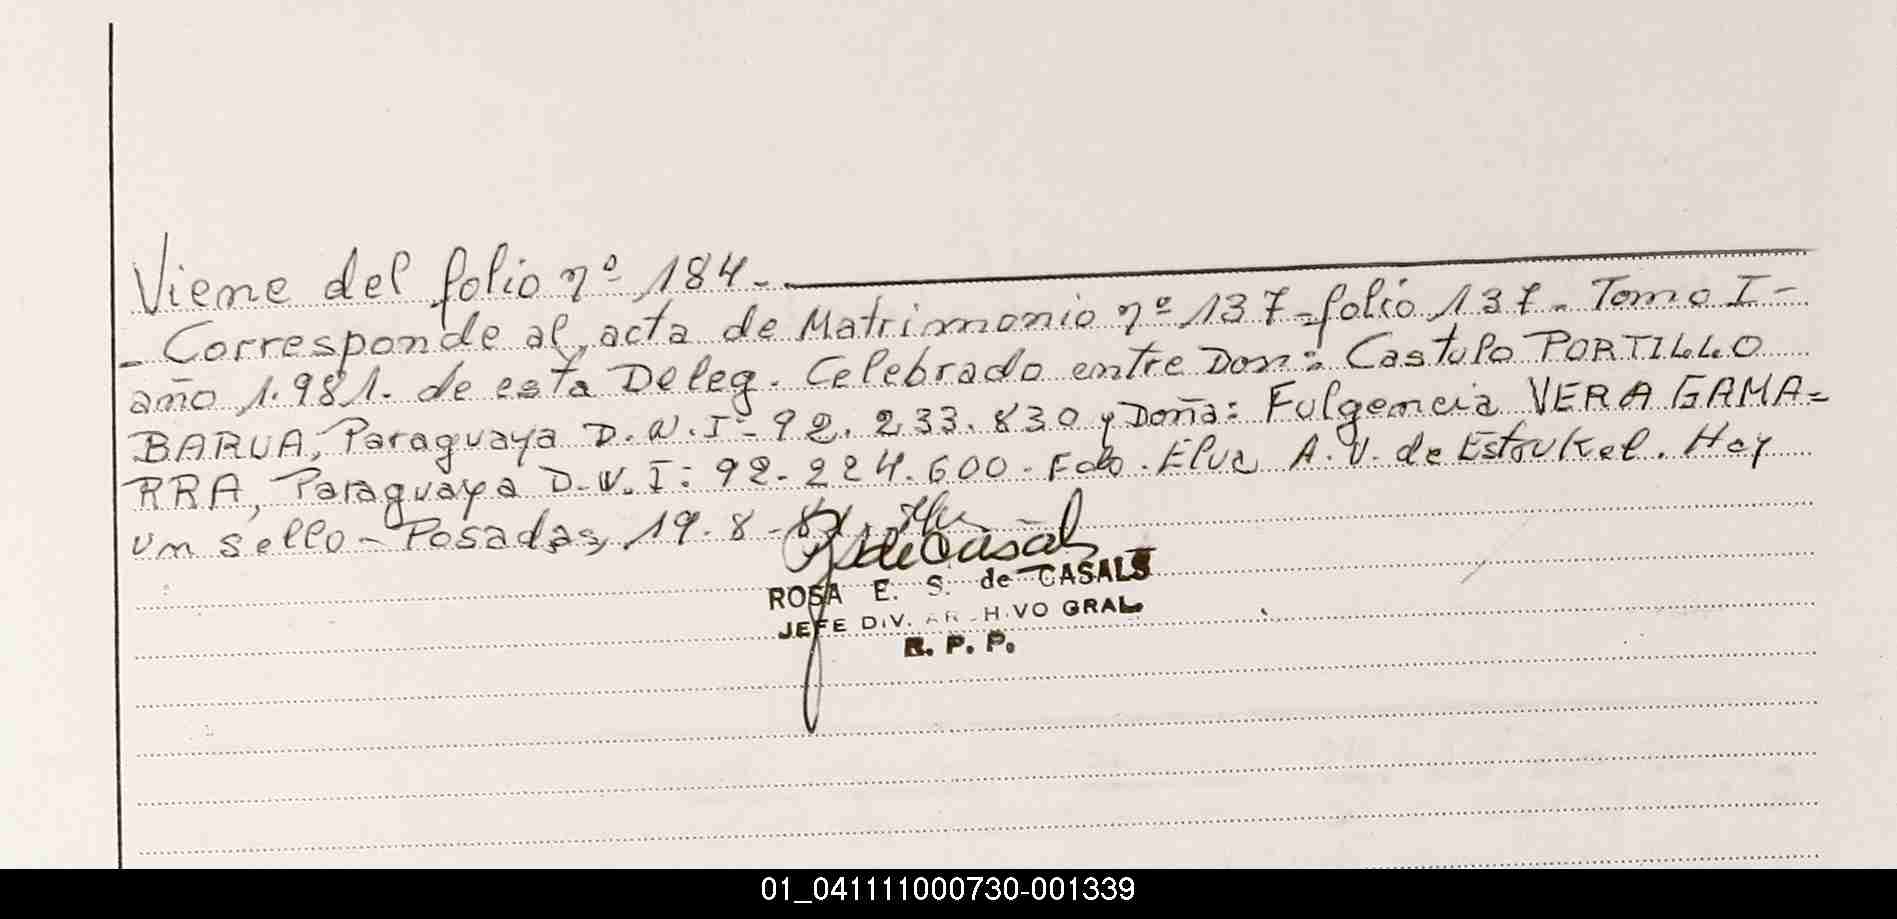 Viene del folio nº 184.-
- Corresponde al acta de Matrimonio nº 137 - folio 137 - Tomo I -
año 1.981. de esta Deleg. Celebrado entre Don: Castulo PORTILLO
BARUA, Paraguaya D.N.I - 92.233.830 y Doña: Fulgencia VERA GAMA=
RRA, Paraguaya D.N.I: 92-224.600. Fdo. Elva A.V. de Estoukel. Hay
un sello - Posadas, 19-8-
ROSA E. S. de CASALS
JEFE DIV. ARCHIVO GRAL
R. P. P.
01_041111000730-001339